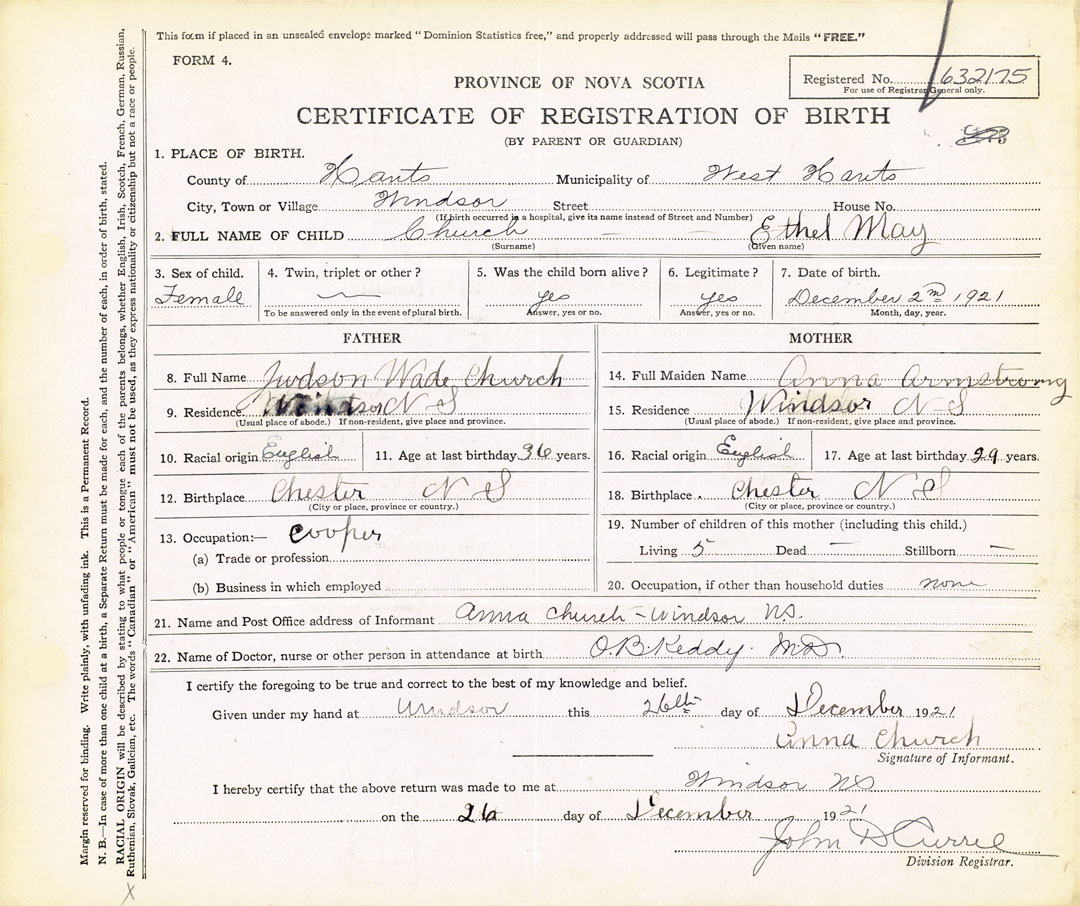 This form if placed in an unsealed envelope marked "Dominion Statistics free," and properly addressed will pass through the Mails "FREE."
FORM 4.
PROVINCE OF NOVA SCOTIA
Registered No. 632175
For use of Registrar General only.
CERTIFICATE OF REGISTRATION OF BIRTH
(BY PARENT OR GUARDIAN)
1. PLACE OF BIRTH.
County of Hants Municipality of West Hants
City, Town or Village Windsor Street House No.
(If birth occurred in a hospital, give its name instead of Street and Number)
2. FULL NAME OF CHILD Church Ethel May
(Surname) (Given name)
3. Sex of child. 4. Twin, triplet or other? 5. Was the child born alive? 6. Legitimate? 7. Date of birth.
Female — yes yes December 2nd 1921
To be answered only in the event of plural birth. Answer, yes or no. Answer, yes or no. Month, day, year.
FATHER MOTHER
8. Full Name Judson Wade Church 14. Full Maiden Name Anna Armstrong
9. Residence Windsor N S 15. Residence Windsor N S
(Usual place of abode.) If non-resident, give place and province. (Usual place of abode.) If non-resident, give place and province.
10. Racial origin English 11. Age at last birthday 36 years. 16. Racial origin English 17. Age at last birthday 29 years.
12. Birthplace Chester N S 18. Birthplace Chester N S
(City or place, province or country.) (City or place, province or country.)
13. Occupation:— Cooper 19. Number of children of this mother (including this child.)
(a) Trade or profession Living 5 Dead — Stillborn —
(b) Business in which employed 20. Occupation, if other than household duties none
21. Name and Post Office address of Informant Anna Church - Windsor N.S.
22. Name of Doctor, nurse or other person in attendance at birth O. B. Keddy. M.D.
I certify the foregoing to be true and correct to the best of my knowledge and belief.
Given under my hand at Windsor this 26th day of December 1921
Anna Church
Signature of Informant.
I hereby certify that the above return was made to me at Windsor NS
on the 26 day of December 1921
John D Currie
Division Registrar.
Margin reserved for binding. Write plainly, with unfading ink. This is a Permanent Record.
N. B.—In case of more than one child at a birth, a Separate Return must be made for each, and the number of each, in order of birth, stated.
RACIAL ORIGIN will be described by stating to what people or tongue each of the parents belongs, whether English, Irish, Scotch, French, German, Russian,
Ruthenian, Slovak, Galician, etc. The words "Canadian" or "American" must not be used, as they express nationality or citizenship but not a race or people.
X